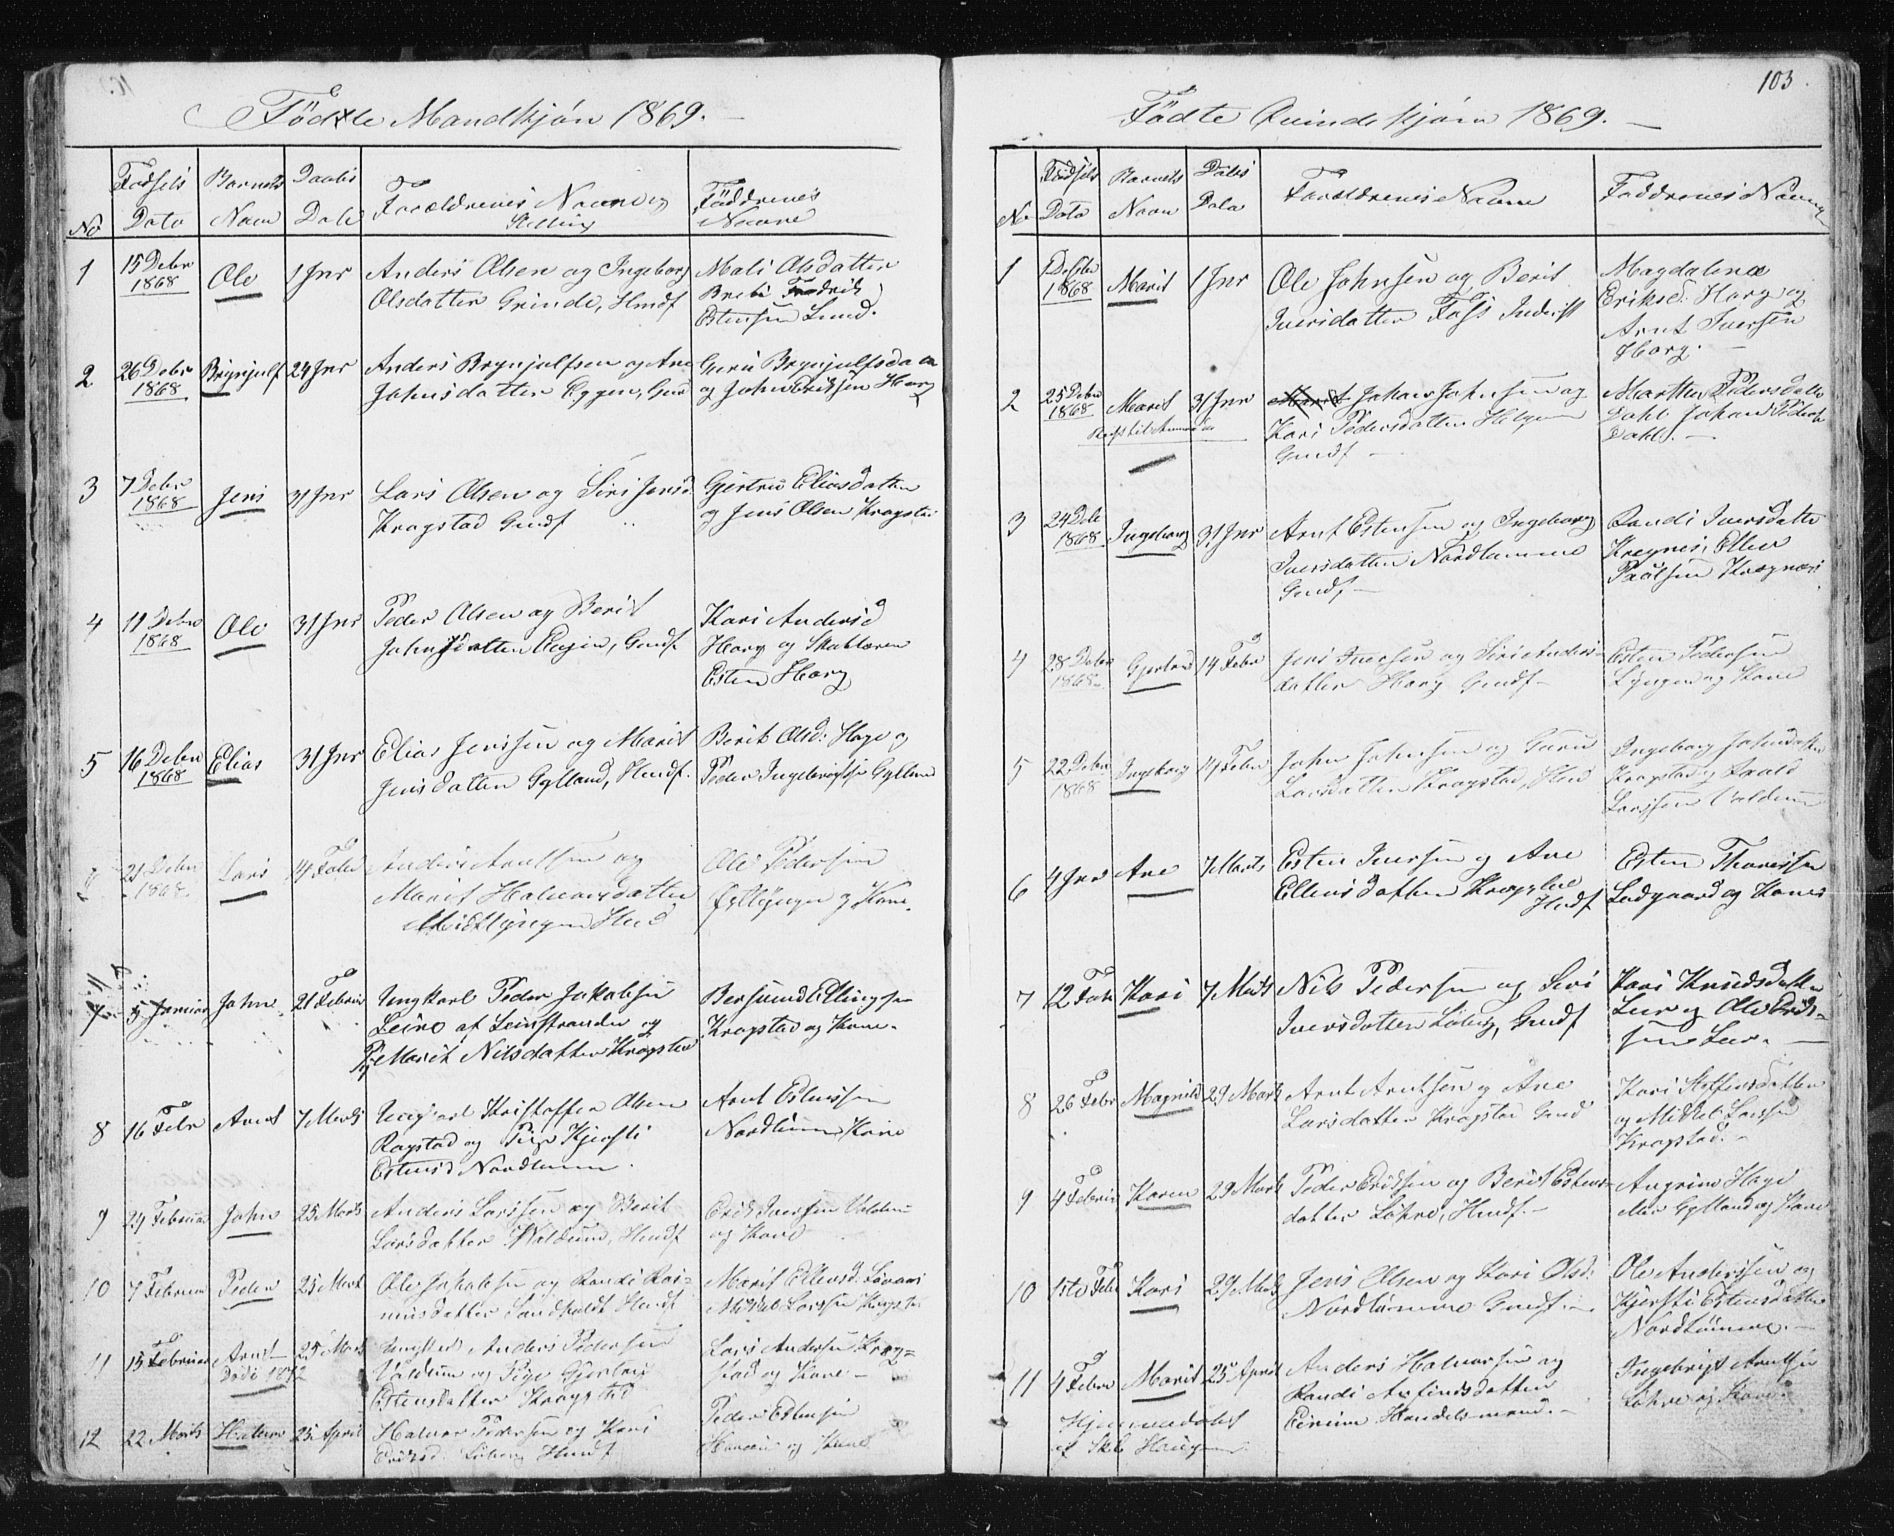 Födte Mandkjön 1869.
No
Födsels Dato
Barnets Navn
Daabs Dato
Forældrenes Navn og Stilling
Faddrenes Navne
1 15 Debr 1868 Ole 1 Jnr Anders Olsen og Ingeborg Olsdatter Grinde, Hmdf Mali Olsdatter Fredrik Estensen Lund.
2 26 Debr 1868 Brynjulf 24 Jnr Anders Brynjulfsen og Ane Johnsdatter Eggen, Gmd Guru Brynjulfsda og John Eriksen Horg
3 7 Debr 1868 Jens 31 Jnr Lars Olsen og Siri Jensd. Kragstad Gmdf Gjertru Eliasdatter og Jens Olsen Kragsta
4 11 Debr 1868 Ole 31 Jnr Peder Olsen og Berit Johnsdatter Gmdf Kari Andersd Horg og Esten Horg
5 16 Debr 1868 Elias 31 Jnr Elias Jenssen og Marit Jensdatter Gylland, Hmdf. Berit Olsd: Hage og Peder Ingebrigtsen Gyllan
21 Debr 1868 Lars 14 Febr Anders Arntsen og Marit Halvorsdatter Hmd Ole Pedersen og Kone.
7 5 Januar John 21 Februar Ungkarl Peder Jakobsen Leine af Leinstranden og Pige Marit Nilsdatter Kragstad Bersvend Ellingsen Kragstad og Kone.
8 16 Febr Arnt 7 Marts Ungkarl Kristoffer Olsen Ragstad og Pige Kjersti Estensd Nordtømme. Arnt Estensen Nordtømme Kone
9 24 Februar John 25 Marts Anders Larssen og Berit Larsdatter Valdum, Hmdf Erik Iversen Valdum og Kone
10 7 Februar Peder 25 Mart Ole Jakobsen og Randi Rasmusdatter Hmdf Marit Ellevsd. Mikkel Larssen Kragstad
11 13 Februar Arnt Död 1872 25 Marts Ungkarl Anders Pedersen Valdum og Pige Gjertru Estensdatter Kragstad Lars Andersen Kragstad og Kone
12 22 Marts Halvor 25 April Halvor Pedersen og Kari Eriksd. Løberg Hmdf Peder Estensen og Kone
103.
Födte Qvindekjön 1869.
No
Födsels Dato
Barnets Navn
Dåbs Dato
Forældrenes Navne
Faddrenes Navne
1 Debr 1868 Marit 1 Jnr Ole Johnsen og Berit Iversdatter Foss Inderst Magdalena Eriksd. Horg og Arnt Iversen Horg.
2 25 Debr 1868 Marit 31 Jnr Johan Johnsen og Kari Pedersdatter Gmdf Marthe Pedersdatter Dahl Johan Dahl.
3 24 Debr 1868 Ingeborg 31 Jnr Arnt Estensen og Ingeborg Iversdatter Nordtømme Gmdf Randi Iversdatter Kregnes, Ellev Paulsen Kregnæs
4 28 Debr 1868 Gjertru 14 Febr Jens Iversen og Siri Andersdatter Horg Gmdf Esten Pedersen Lyngen og Kone
5 22 Debr 1868 Ingeborg 14 Febr John Johnsen og Guru Larsdatter Kragstad, Hmd Ingeborg Johnsdatter Kragstad og Larssen Valdum
6 4 Jnr Ane 7 Marts Esten Iversen og Ane Ellevsdatter Hmdf Esten Thoressen Ladgaard og Kone
7 12 Feb Kari 7 Marts Nils Pedersen og Siri Iversdatter Løberg, Gmdf Kari Knudsdatter Leer og Ole Eriksen Leer.
8 26 Febr Magnild 29 Marts Arnt Arntsen og Ane Larsdatter Kragstad Gmd Kari Steffensdatter og Mikkel Larssen Kragstad.
9 4 Februar Karen 29 Marts Peder Eriksen og Berit Estensdatter Løhre, Hmdf. Hage Gylland og Kone
10 1ste Febr Kari 29 Marts Jens Olsen og Kari Olsd: Nordtømme Gmdf. Ole Anderssen og Kjersti Estensdatter Nordtömme.
11 4 Febr Marit 25 April Anders Halvorsen og Randi Arfindsdatter Handelsmand. Ingebrigt Arntsen Løhre og Kone
Hjemmedöbt af